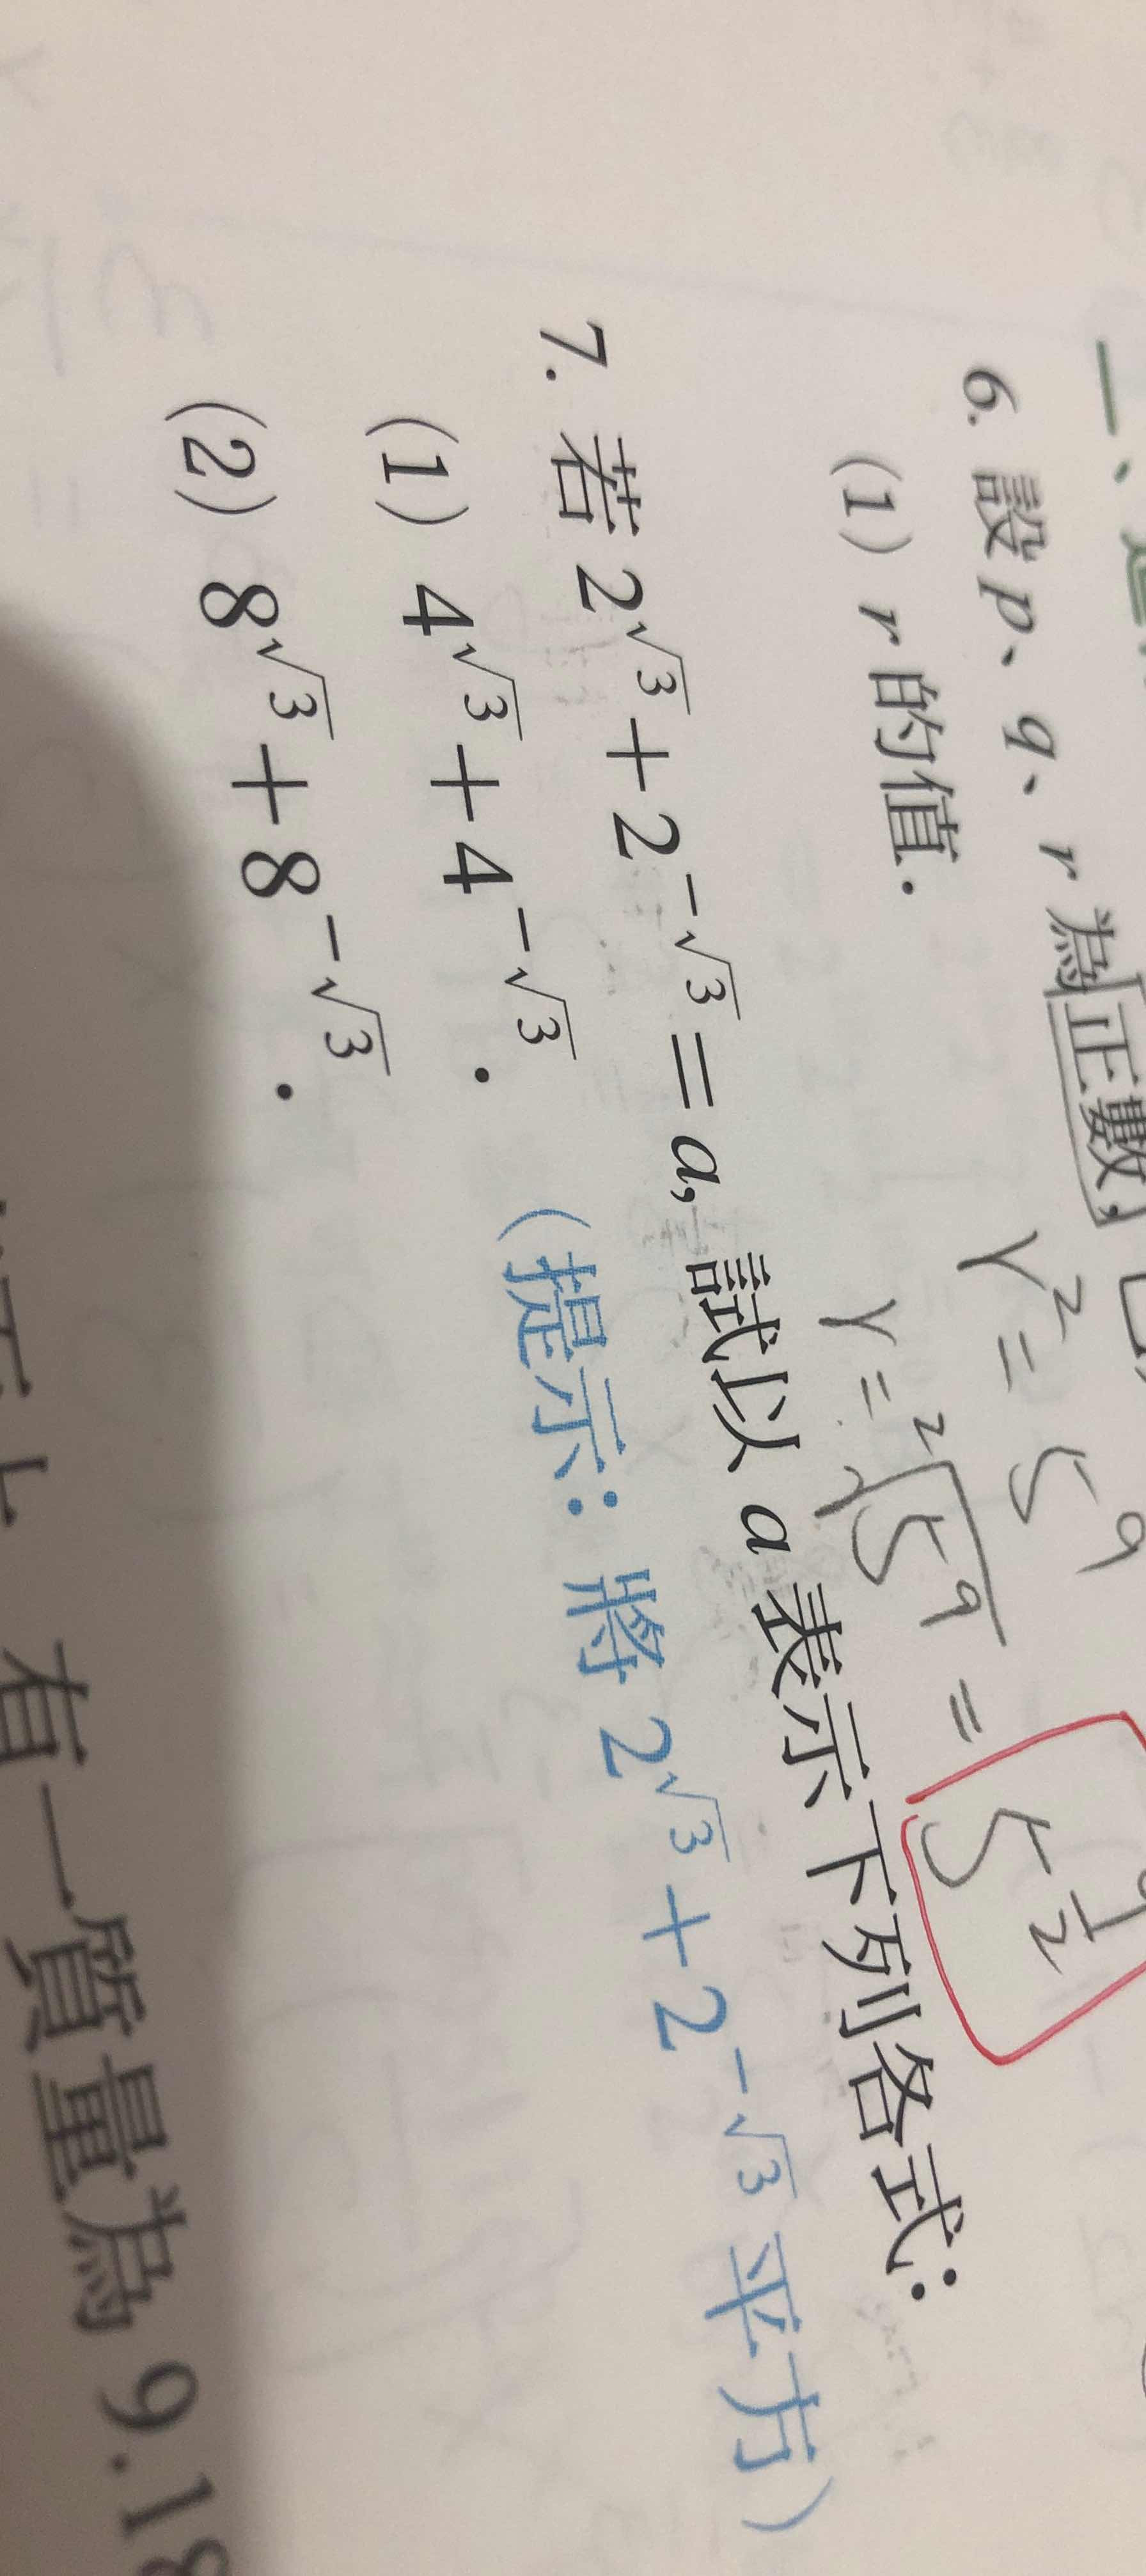 6. 設 p、q、r 為正數,
γ² = 5⁹
(1) r 的值.
γ = ²√5⁹ = 5^(9/2)
7. 若 2^√3 + 2^-√3 = a, 試以 a 表示下列各式:
(1) 4^√3 + 4^-√3. (提示: 將 2^√3 + 2^-√3 平方)
(2) 8^√3 + 8^-√3.
有一質量為 9.18